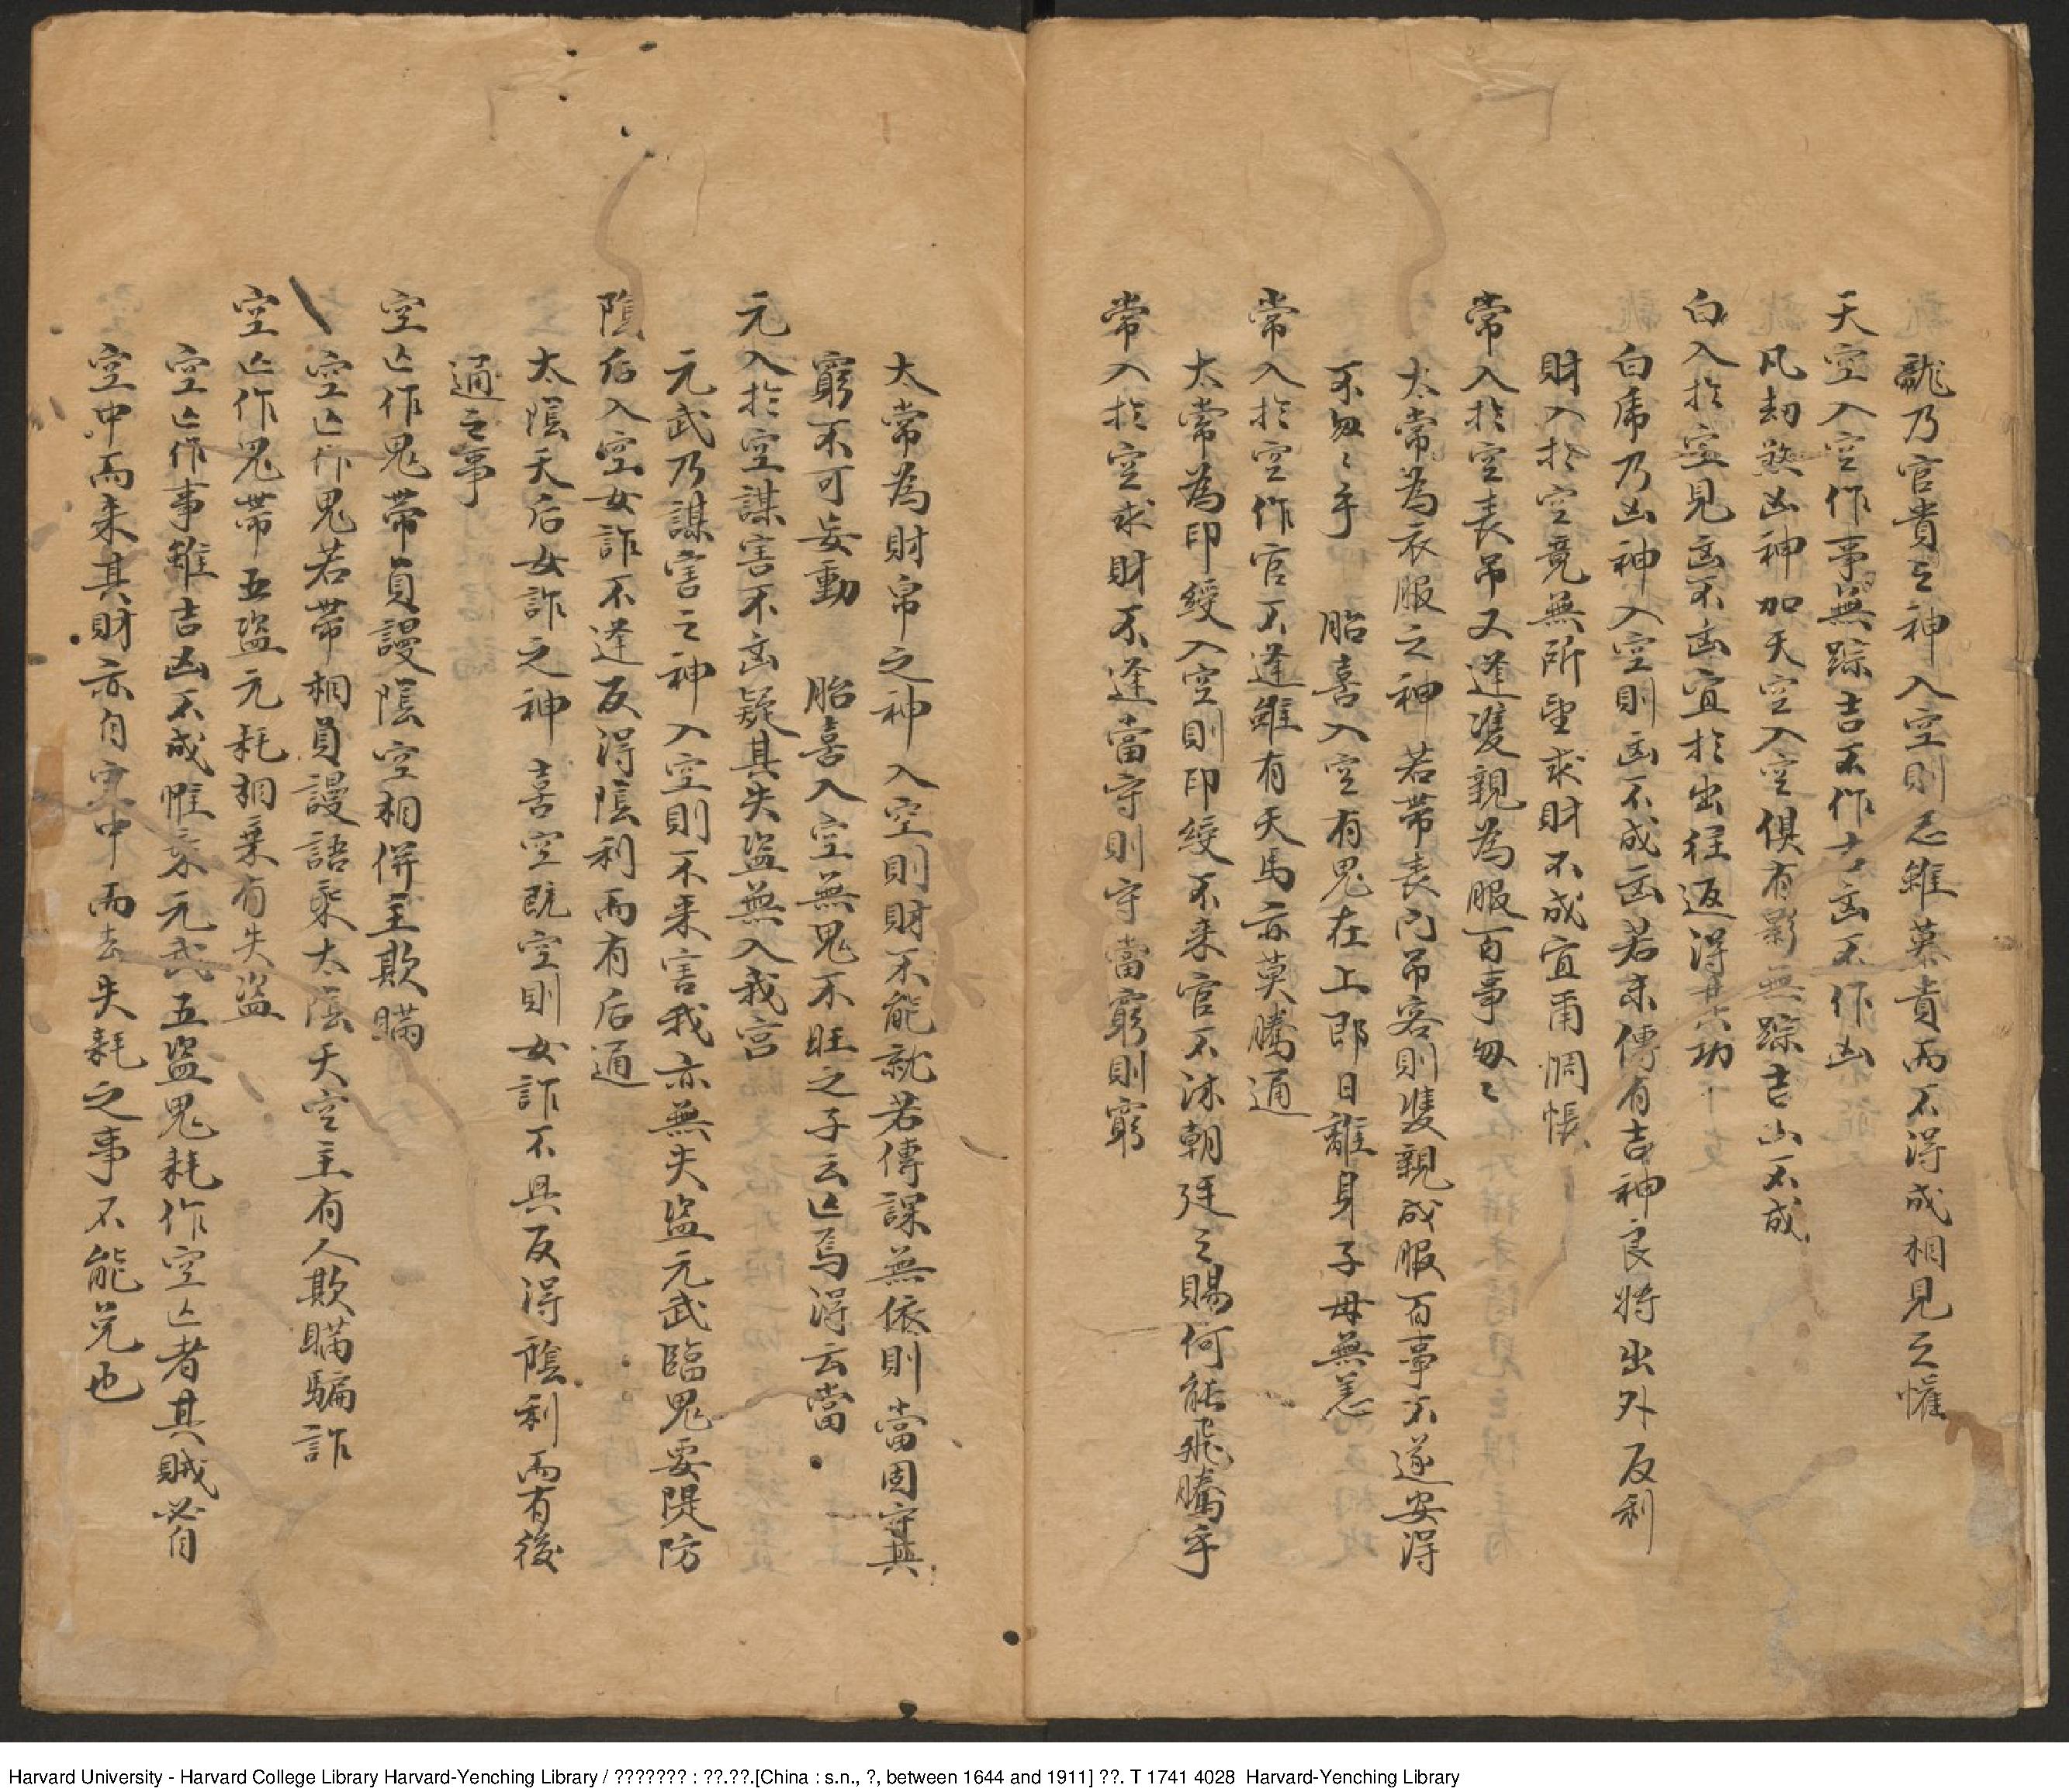 龍乃官貴之神入空則忌雖慕貴而不得成相見之懽
天空入空作事無踪吉不作吉凶不作凶
凡刼煞凶神加天空入空俱有影無踪吉凶不成
白入於空見凶不凶宜於出徃返得其功
白虎乃凶神入空則凶不成凶若末傳有吉神良將出外反利
財入於空竟無所望求財不成宜甭惆悵
常入於空喪吊又逢雙親為服百事匆〻
太常為衣服之神若帶喪门吊客則雙親成服百事不遂安得
不匆〻乎 胎喜入空有鬼在上即日離身子母無恙
常入於空作官不逢雖有天馬亦莫騰通
太常為印綬入空則印綬不来官不沐朝廷之賜何能飛騰乎
常入於空求財不逢當守則守當窮則窮
太常為財帛之神入空則財不能就若傳課無依則當固守其
窮不可妄動 胎喜入空無鬼不旺之子云亾焉得云當
元入於空謀害不凶疑其失盜無入我宮
元武乃謀害之神入空則不来害我亦無失盜元武臨鬼要隄防
陰后入空女詐不逢反得陰利而有后通
太陰天后女詐之神喜空既空則女詐不具反得陰利而有後
通之事
空亾作鬼帶負謾陰空相併主欺瞞
空亾作鬼若帶相負謾語乘太陰天空主有人欺瞞騙詐
空亾作鬼帶五盜元耗相乗有失盜
空亾作事雖吉凶不成惟乘元武五盜鬼耗作空亾者其賊必自
空中而来其財亦自空中而去失耗之事不能免也
Harvard University - Harvard College Library Harvard-Yenching Library / ??????? : ??.??.[China : s.n., ?, between 1644 and 1911] ??. T 1741 4028 Harvard-Yenching Library